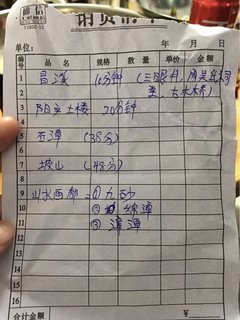 通信
销货清单
单位: 年 月 日
编号 品名 规格 数量 单价 金额
1 昌溪 10分钟 (三眼井,周吴氏祠
2 堂,古木桥)
3 阳产土楼 20分钟
4
5 石潭 (38分)
6
7 坡山 (48分)
8
9 山水画廊 ① 九砂
10 ② 绵潭
11 ③ 漳潭
12
13
14
15
16
合计金额 ¥